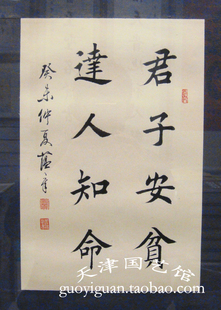 君子安貧
達人知命
癸未仲夏
天津国艺馆
guoyiguan.taobao.com